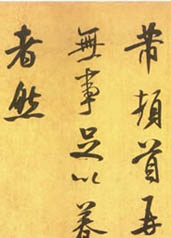 芾頓首再
無事足以養
者然